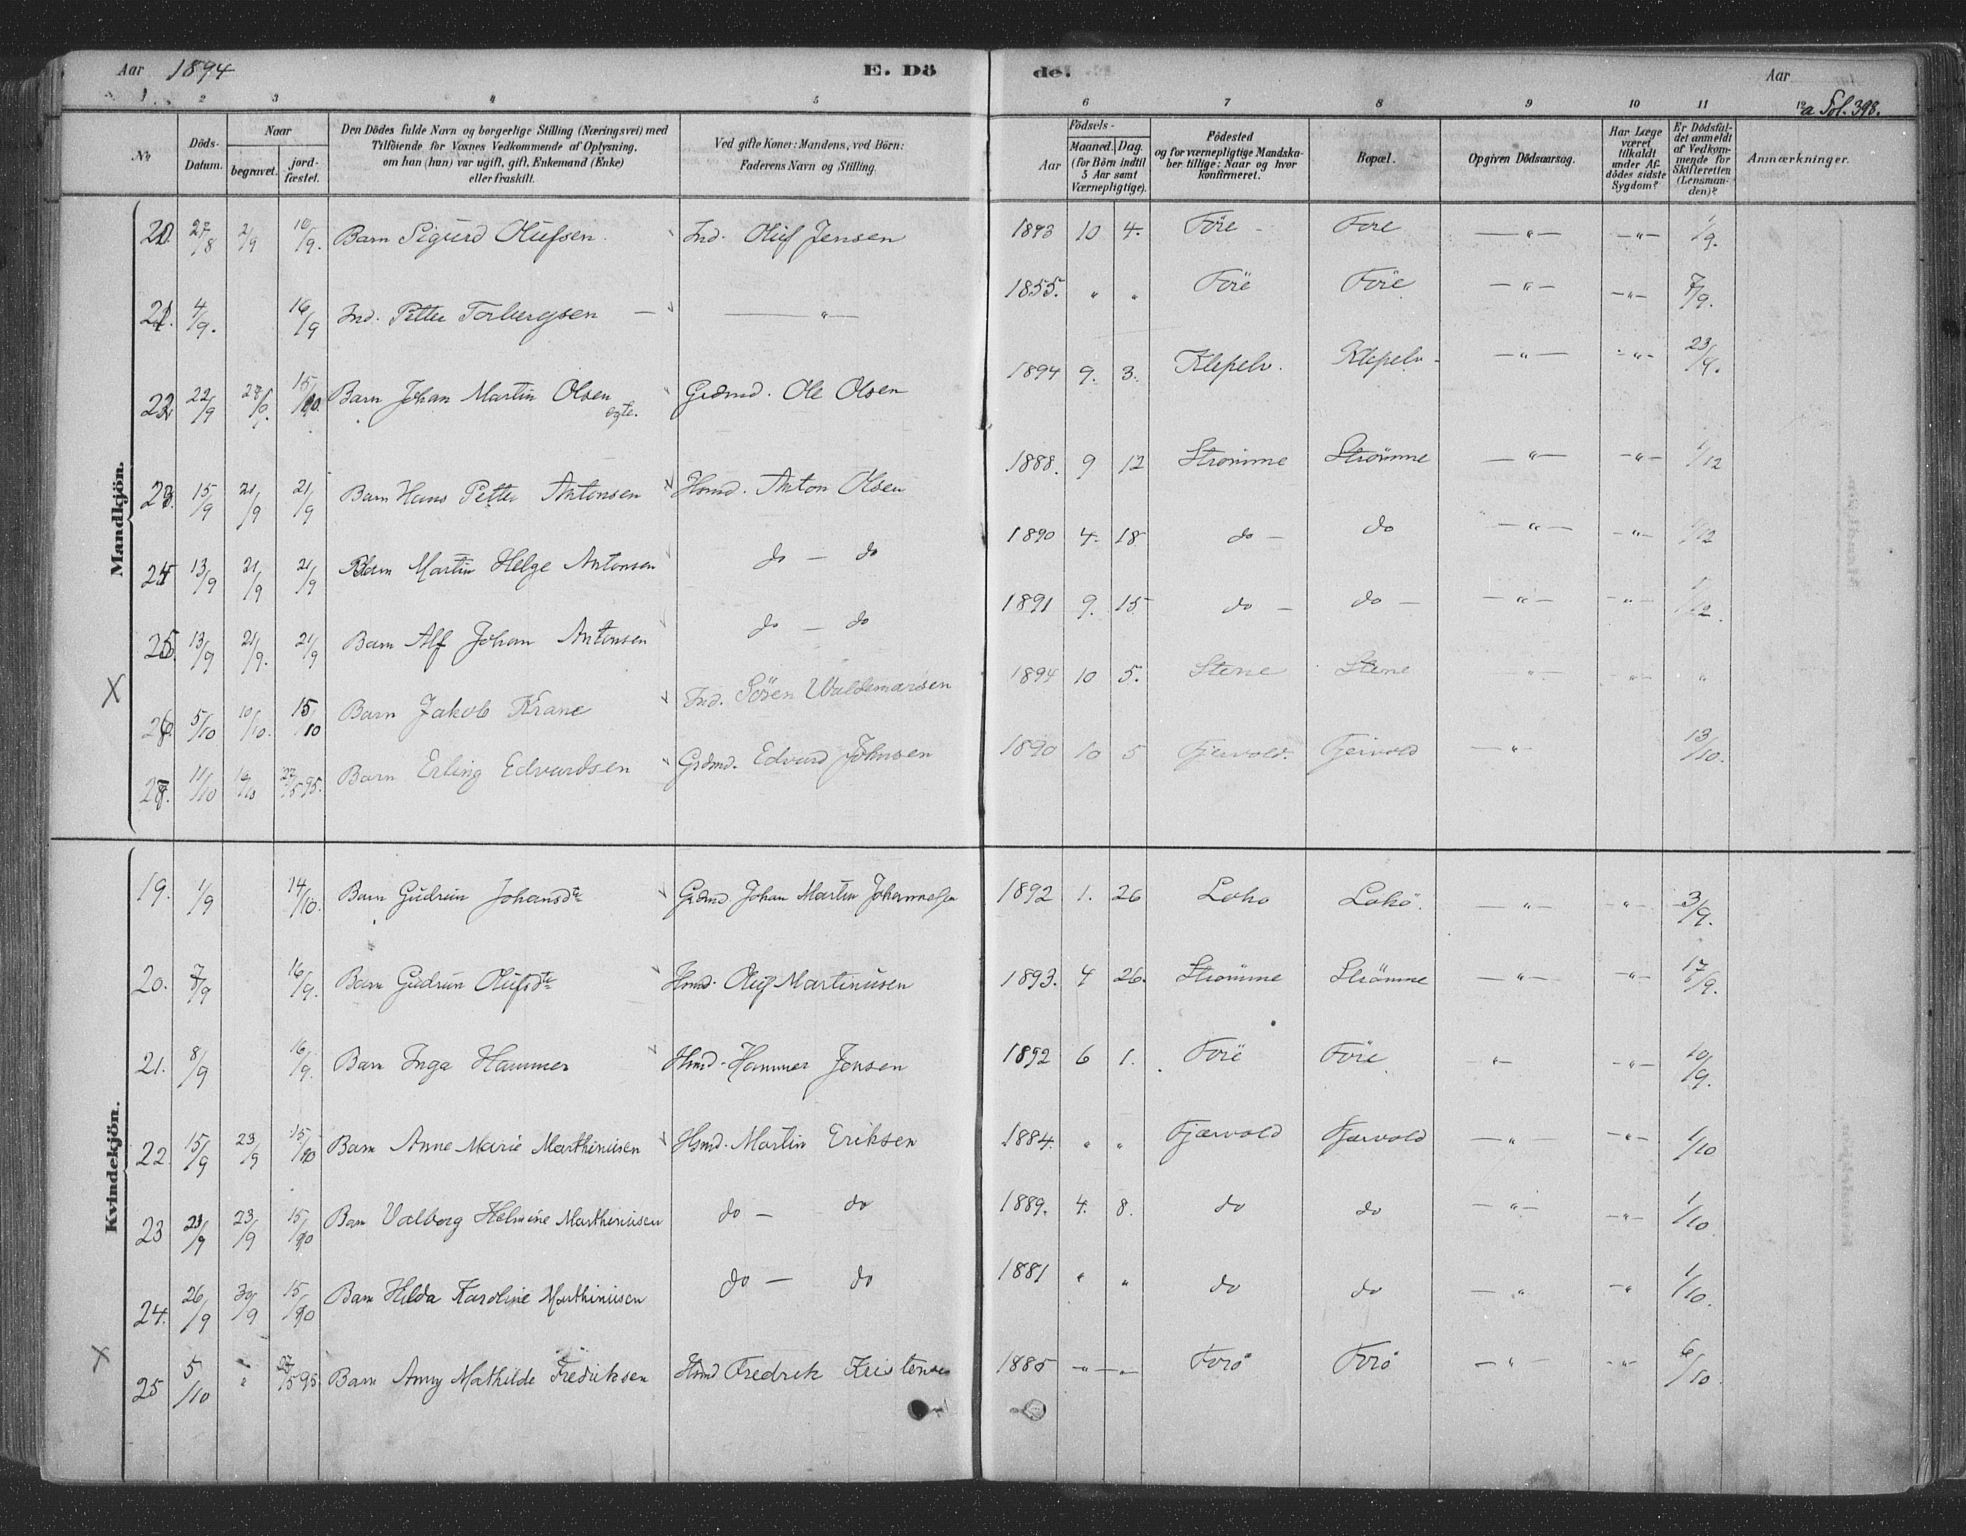 Aar 1894 E. Dö de. Aar
1. 2 3 4 5 6 7 8 9 10 11 12 a Fol. 398.
No
Döds-Datum.
Naar
begravet.
jord-fæstet.
Den Dödes fulde Navn og borgerlige Stilling (Næringsvei) med
Tilföiende for Voxnes Vedkommende af Oplysning,
om han (hun) var ugift, gift, Enkemand (Enke)
eller fraskilt.
Ved gifte Koner: Mandens, ved Börn:
Faderens Navn og Stilling.
Födsels-
Aar
Maaned. Dag.
(for Börn indtil
5 Aar samt
Værnepligtige).
Födested
og for værnepligtige Mandska-
ber tillige: Naar og hvor
konfirmeret.
Bopæl.
Opgiven Dödsaarsag.
Har Læge
været
tilkaldt
under Af-
dödes sidste
Sygdom?
Er Dödsfal-
det anmeldt
af Vedkom-
mende for
Skifteretten
(Lensman-
den)?
Anmærkninger.
Mandkjön.
20. 27/8 2/9 10/9. Barn Sigurd Olufsen. Ind. Oluf Jensen 1893 10 4. Före - Fore —„— —„— 1/9.
21. 4/9. 16/9 Ind. Petter Torbergsen — —„— 1855. „ „ Före Före —„— —„— 7/9.
22. 22/9 15/10. Barn Johan Martin Olsen ægte. Grdmd. Ole Olsen 1894 9. 3. Klepelv. Klepelv. —„— —„—
23. 15/9 21/9 21/9 Barn Hans Petter Antonsen Hsmd. Anton Olsen 1888. 9 12 Strömme Strömme —„— —„— 1/12
24 13/9 21/9 21/9 Barn Martin Helge Antonsen do — do 1890 4. 18 do — do —„— —„— 1/12
25. 13/9 21/9. 21/9 Barn Alf Johan Antonsen do — do 1891 9. 15 do — do — —„— —„— 1/12.
X 26 5/10 10/10. 15/10 Barn Jakob Krane Ind. Sören Waldemarsen 1894 10 5. Stene Stene —„— —„— „
27. 11/10 16/10 27/5 95. Barn Erling Edvardsen Grdmd. Edvard Johnsen 1890 10 5 Fjærvold. Fjærvold —„— 13/10.
Kvindekjön.
19. 1/9 14/10. Barn Gudrun Johansdtr Grdmd Johan Martin Johannessen 1892 1. 26 Lohö Lohö. —„— —„— 3/9.
20. 7/9 16/9. Barn Gudrun Olufsdtr Hsmd. Oluf Martinusen 1893. 4 26. Strömme Strömme —„— —„— 17/9.
21. 8/9 16/9. Barn Inga Hammer Hsmd. Hammer Jensen 1892 6 1. Före Före. —„— —„— 10/9.
22. 15/9 23/9 15/10 Barn Anne Marie Marthinusen Hsmd. Martin Eriksen 1884. „ „ Fjærvold Fjærvold —„— —„— 1/10
23 21/9 23/9 15/10 Barn Valborg Helmine Marthinusen do — do 1889. 4. 8. do do —„— —„— 1/10.
24. 26/9 30/9 15/10 Barn Hilda Karoline Marthinusen do — do 1881 „ „ do do —„— —„— 1/10.
X 25 5/10 „ 27/5 95. Barn Anny Mathilde Fredriksen Hsmd Fredrik Kristensen 1885 —„— Forö Forö —„— —„— 6/10.